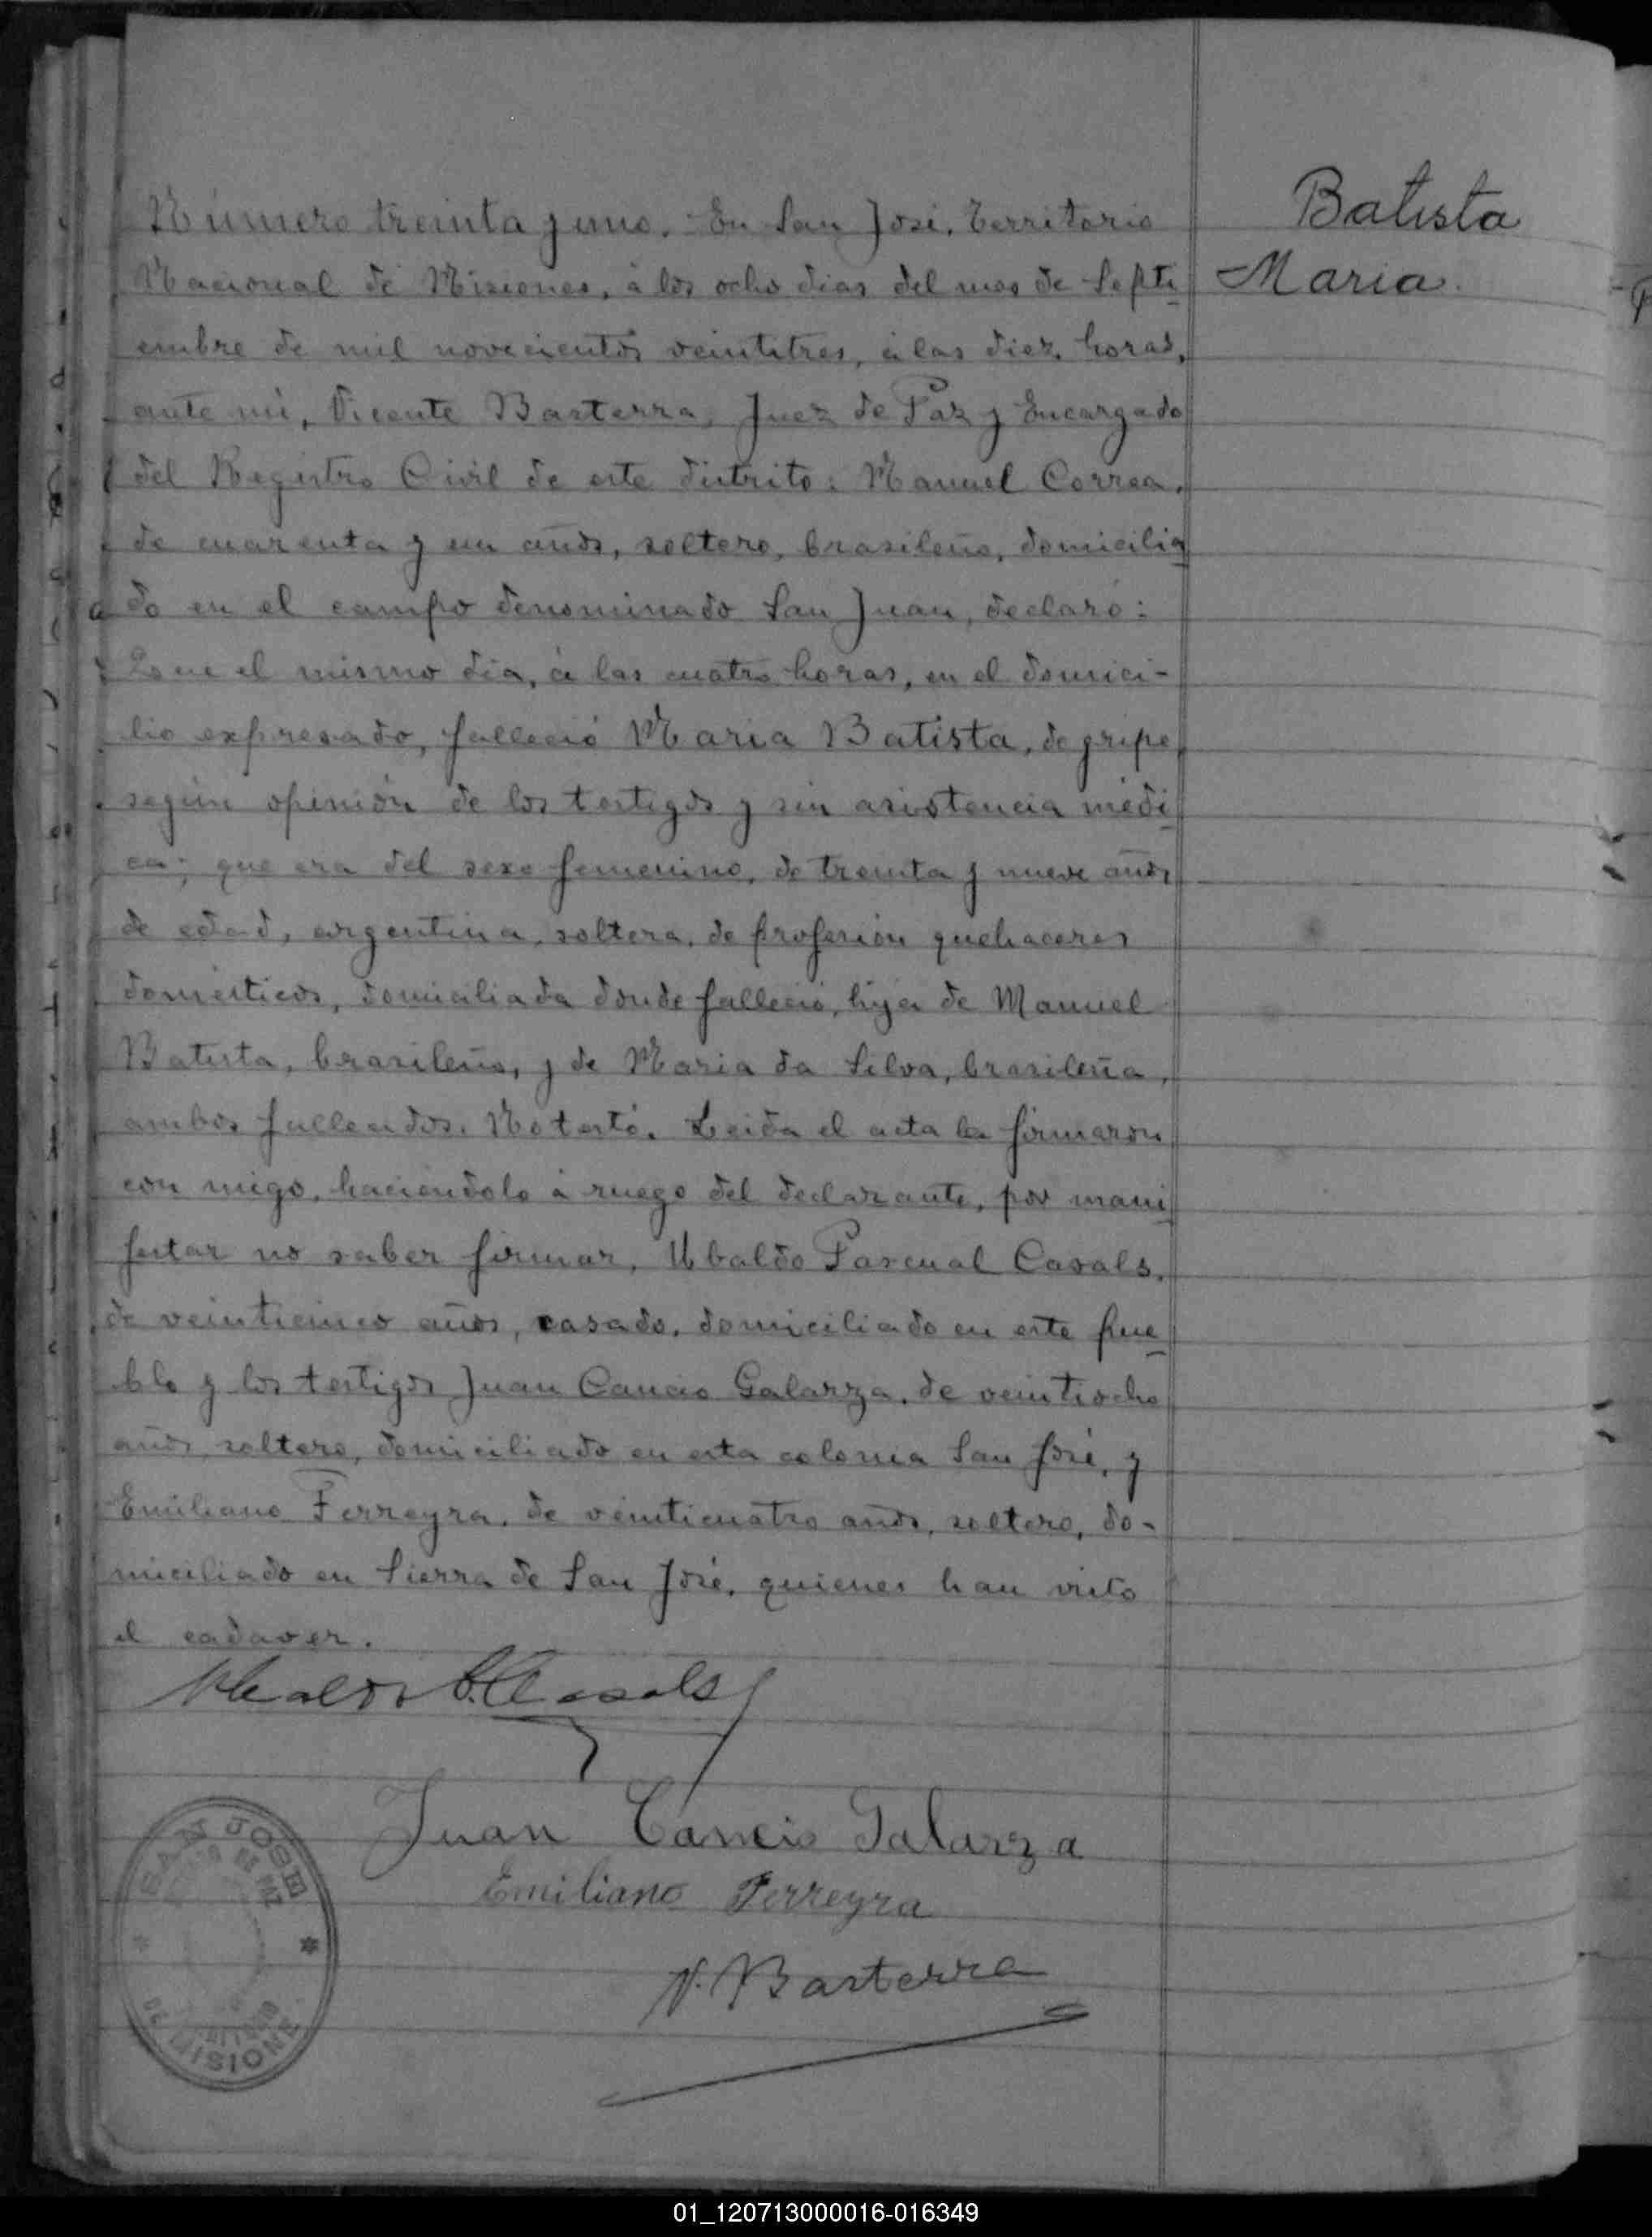 Número treinta y uno. En San José, Territorio
Nacional de Misiones, á los ocho dias del mes de Septi
embre de mil novecientos veintitres, á las diez horas,
ante mi, Vicente Basterra, Juez de Paz y Encargado
del Registro Civil de este distrito: Manuel Correa,
de cuarenta y un años, soltero, brasileño, domicilia
do en el campo denominado San Juan, declaró:
Que el mismo dia, á las cuatro horas, en el domici-
lio expresado, falleció Maria Batista, de gripe,
según opinión de los testigos y sin asistencia médi
ca; que era del sexo femenino, de treinta y nueve años
de edad, argentina, soltera, de profesión quehaceres
domésticos, domiciliada donde falleció, hija de Manuel
Batista, brasileño, y de Maria da Silva, brasileña,
ambos fallecidos. No testó. Leida el acta la firmaron
con migo, haciendolo á ruego del declarante, por mani
festar no saber firmar, Ubaldo Pascual Casals,
de veinticinco años, casado, domiciliado en este pue
blo y los testigos Juan Cancio Galarza, de veintiocho
años, soltero, domiciliado en esta colonia San José, y
Emiliano Ferreyra, de veinticuatro años, soltero, do-
miciliado en Sierra de San José, quienes han visto
el cadaver.
Batista
Maria.
Ubaldo P. Casals
Juan Cancio Galarza
Emiliano Ferreyra
V. Basterra
SAN JOSE
DE PAZ
MISIONES
01_120713000016-016349